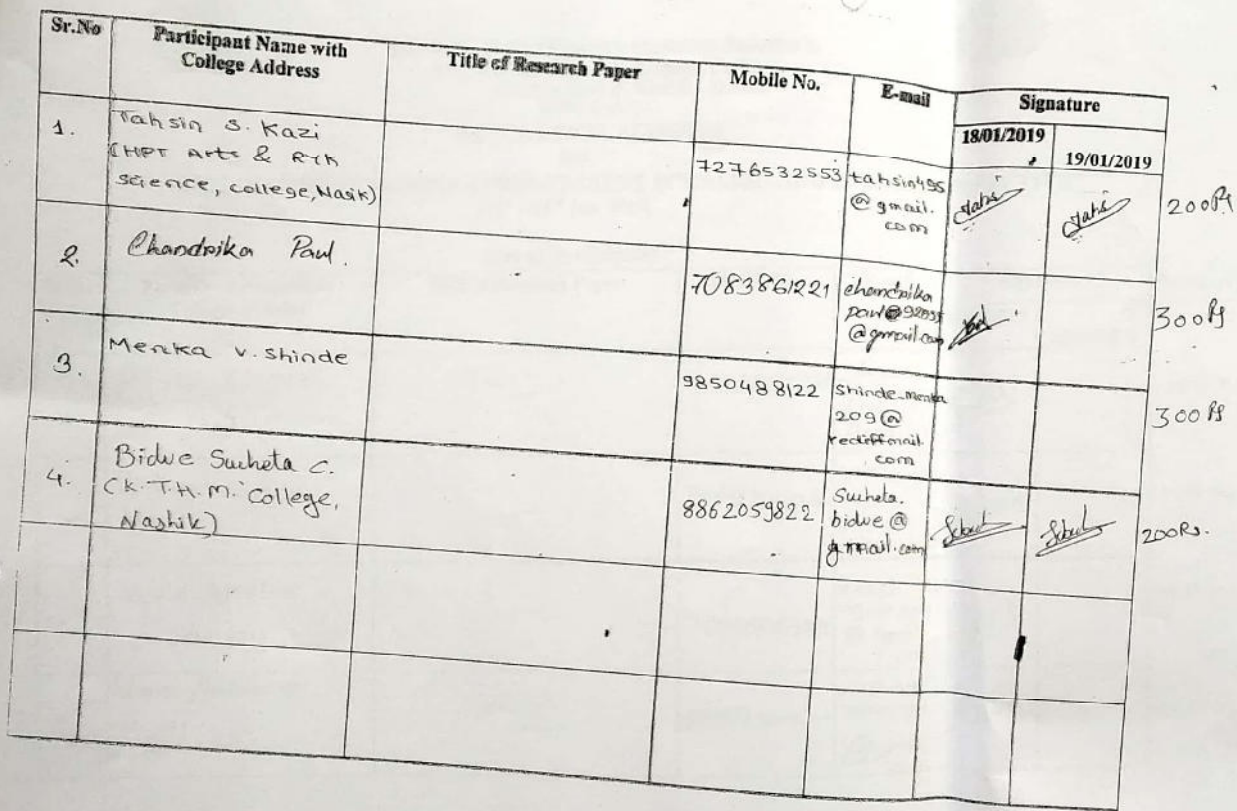 Sr.No
Participant Name with
College Address
Title of Research Paper
Mobile No.
E-mail
Signature
18/01/2019
19/01/2019
1.
Tahsin S. Kazi
(HPT Arts & RYK
science, college, Nasik)
7276532553
tahsin495
@ gmail.
com
200Rs
2.
Chandrika Paul.
7083861221
chandrika
@gmail.com
300Rs
3.
Menka v. shinde
9850488122
Shinde_menka
209@
rediffmail.
com
300Rs
4.
Bidwe Sucheta C.
(K.T.H.M. College,
Nashik)
8862059822
Sucheta.
bidwe@
gmail.com
200Rs.